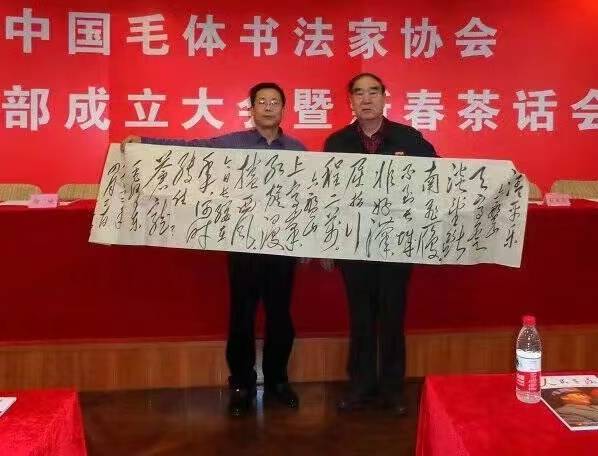 中国毛体书法家协会
部成立大会暨新春茶话会
清平乐
六盘山
天高云
淡望断
南飞雁
不到长城
非好汉
屈指行
程二万
六盘山
上高峰
红旗漫
卷西风
今日长缨在
手何时
缚住
苍龙
毛泽东